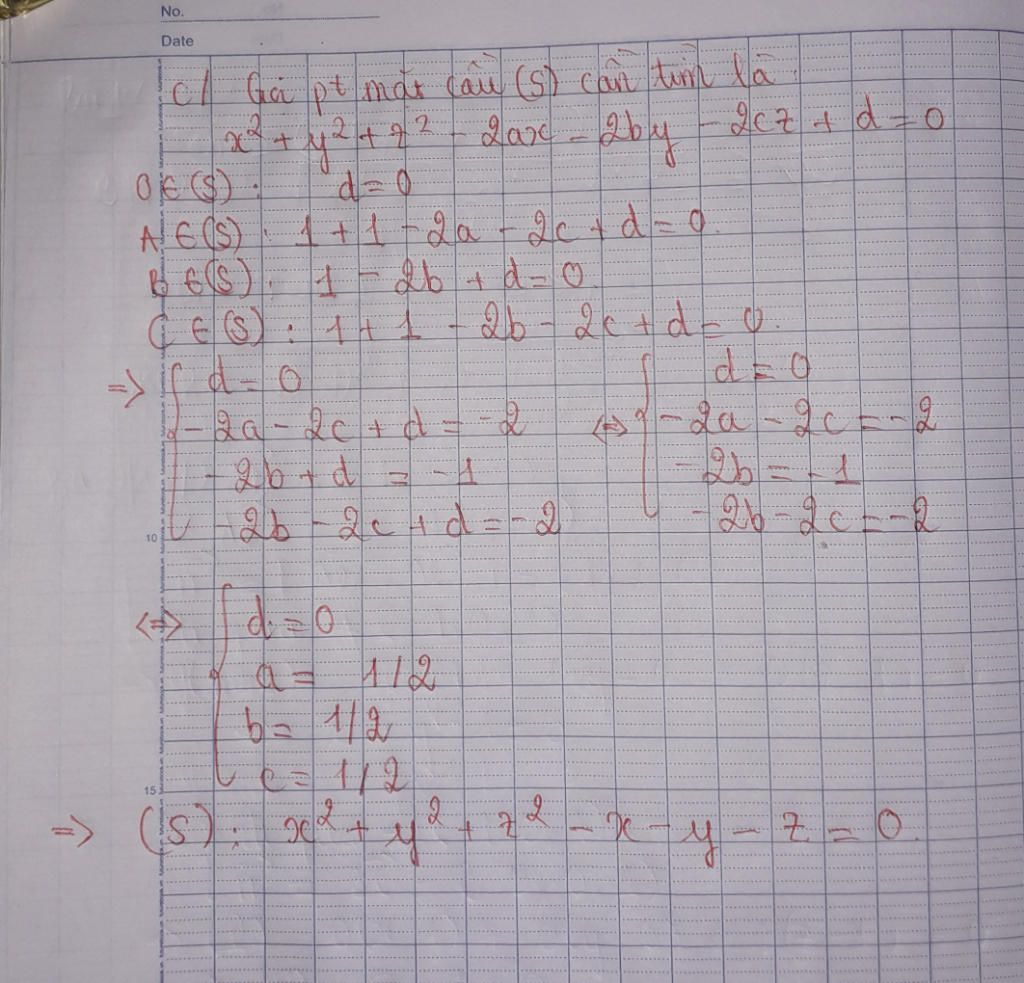 No.
Date
c/ Gọi pt mặt cầu (S) cần tìm là
x² + y² + z² - 2ax - 2by - 2cz + d = 0
O ∈ (S) : d = 0
A ∈ (S) : 1 + 1 - 2a - 2c + d = 0.
B ∈ (S) : 1 - 2b + d = 0.
C ∈ (S) : 1 + 1 - 2b - 2c + d = 0.
=> { d = 0
- 2a - 2c + d = -2
- 2b + d = -1
- 2b - 2c + d = -2
<=> { d = 0
- 2a - 2c = -2
- 2b = -1
- 2b - 2c = -2
10
<=> { d = 0
a = 1/2
b = 1/2
c = 1/2
15
=> (S) : x² + y² + z² - x - y - z = 0.